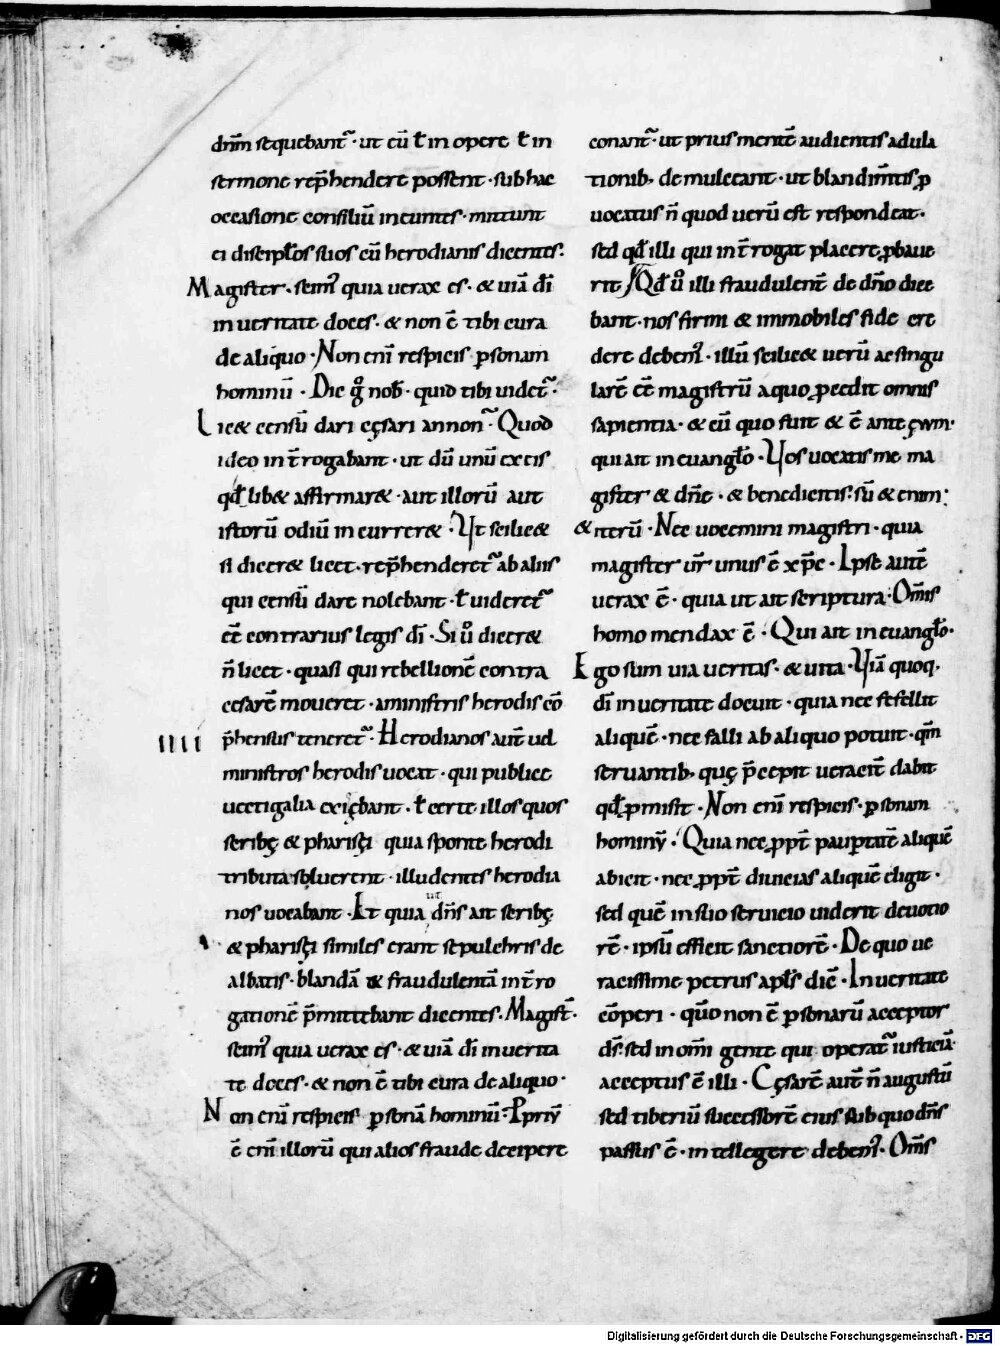 dnm̄ sequebant᷑ · ut eū ł in opere ł in
sermone rep̄hendere possent · sub hac
occasione consiliū ineuntes · mittunt
ei discipłos suos cū herodianis dicentes:
Magister · scim᷑ quia uerax es · & uiā dī
in ueritate doces · & non ē tibi cura
de aliquo · Non enī respicis ꝑsonam
hominū · Dic g̊ nob̄ · quid tibi uidet᷑ ·
Lic& censū dari cęsari an non᷑ · Quod
ideo int̄rogabant · ut dū unū ex eis
qđ lib& affirmar& · aut illorū aut
istorū odiū incurrer& · Ut scilic&
si dicer& licet · rep̄henderet᷑ ab aliis
qui censū dare nolebant · ł uideret᷑
ēē contrarius legis dī · Si ů dicer&
n̄ licet · quasi qui rebellionē contra
cesarē moueret · a ministris herodis cō
p̄hensus teneret᷑ · Herodianos aut̄ uel
IIII
ministros herodis uocat · qui publice
uectigalia exiębant · ł certe illos quos
scribę & pharisęi quia sponte herodi
tributa soluerent · illudentes herodia
nos uocabant · Et quia ut dn̄s ait scribę
& pharisęi similes erant sepulchris de
albatis · blandā & fraudulentā int̄ro
gationē p̄mittebant dicentes · Magist̄ ·
scim᷑ quia uerax es · & uiā dī in uerita
te doces · & non ē tibi cura de aliquo ·
Non enī respicis ꝑsonā hominū · Ppriū
ē enī illorū qui alios fraude decipere
conant᷑ · ut prius mentē audientis adula
tionib; demulceant · ut blandim̄tis ꝓ
uocatus n̄ quod uerū est respondeat ·
sed qđ illi qui int̄rogat placere ꝓbaue
rit / Qđ ů illi fraudulent̄ de dn̄o dice
bant · nos firmi & immobiles fide cre
dere debem᷑ · illū scilic& uerū ac singu
larē ēē magistrū a quo ꝓcedit omnis
sapientia · & cū quo fuit & ē ante ęwm ·
qui ait in euangło · Vos uocatis me ma
gister & dn̄e · & benedicitis: sū & enim:
& iterū · Nec uocemini magistri · quia
magister ur̄ unus ē xp̄c · Ipse autē
uerax ē · quia ut ait scriptura · Om̄is
homo mendax ē · Qui ait in euangło ·
Ego sum uia ueritas · & uita · Viā quoq;
dī in ueritate docuit · quia nec fefellit
aliquē · nec falli ab aliquo potuit · qm̄
seruantib; quę p̄cepit uracit̄ dabit
qđ ꝓmisit · Non enī respicis · ꝑsonam
hominū · Quia nec ꝓpt̄ pauꝑtatē aliquē
abicit · nec ꝓpt̄ diuicias aliquē eligit ·
sed quē in suo seruicio uiderit deuotio
rē · ipsū efficit sanctiorē · De quo ue
racissime petrus apłs dic̄ · In ueritate
cōperi · qm̄o non ē ꝑsonarū acceptor
ds̄ · sed in om̄i gente qui operat᷑ iusticiā
acceptus ē illi · Cęsarē aut̄ n̄ augustū
sed tiberiū successorē eius sub quo dn̄s
passus ē · intellegere debem᷑ · Om̄s
Digitalisierung gefördert durch die Deutsche Forschungsgemeinschaft - DFG